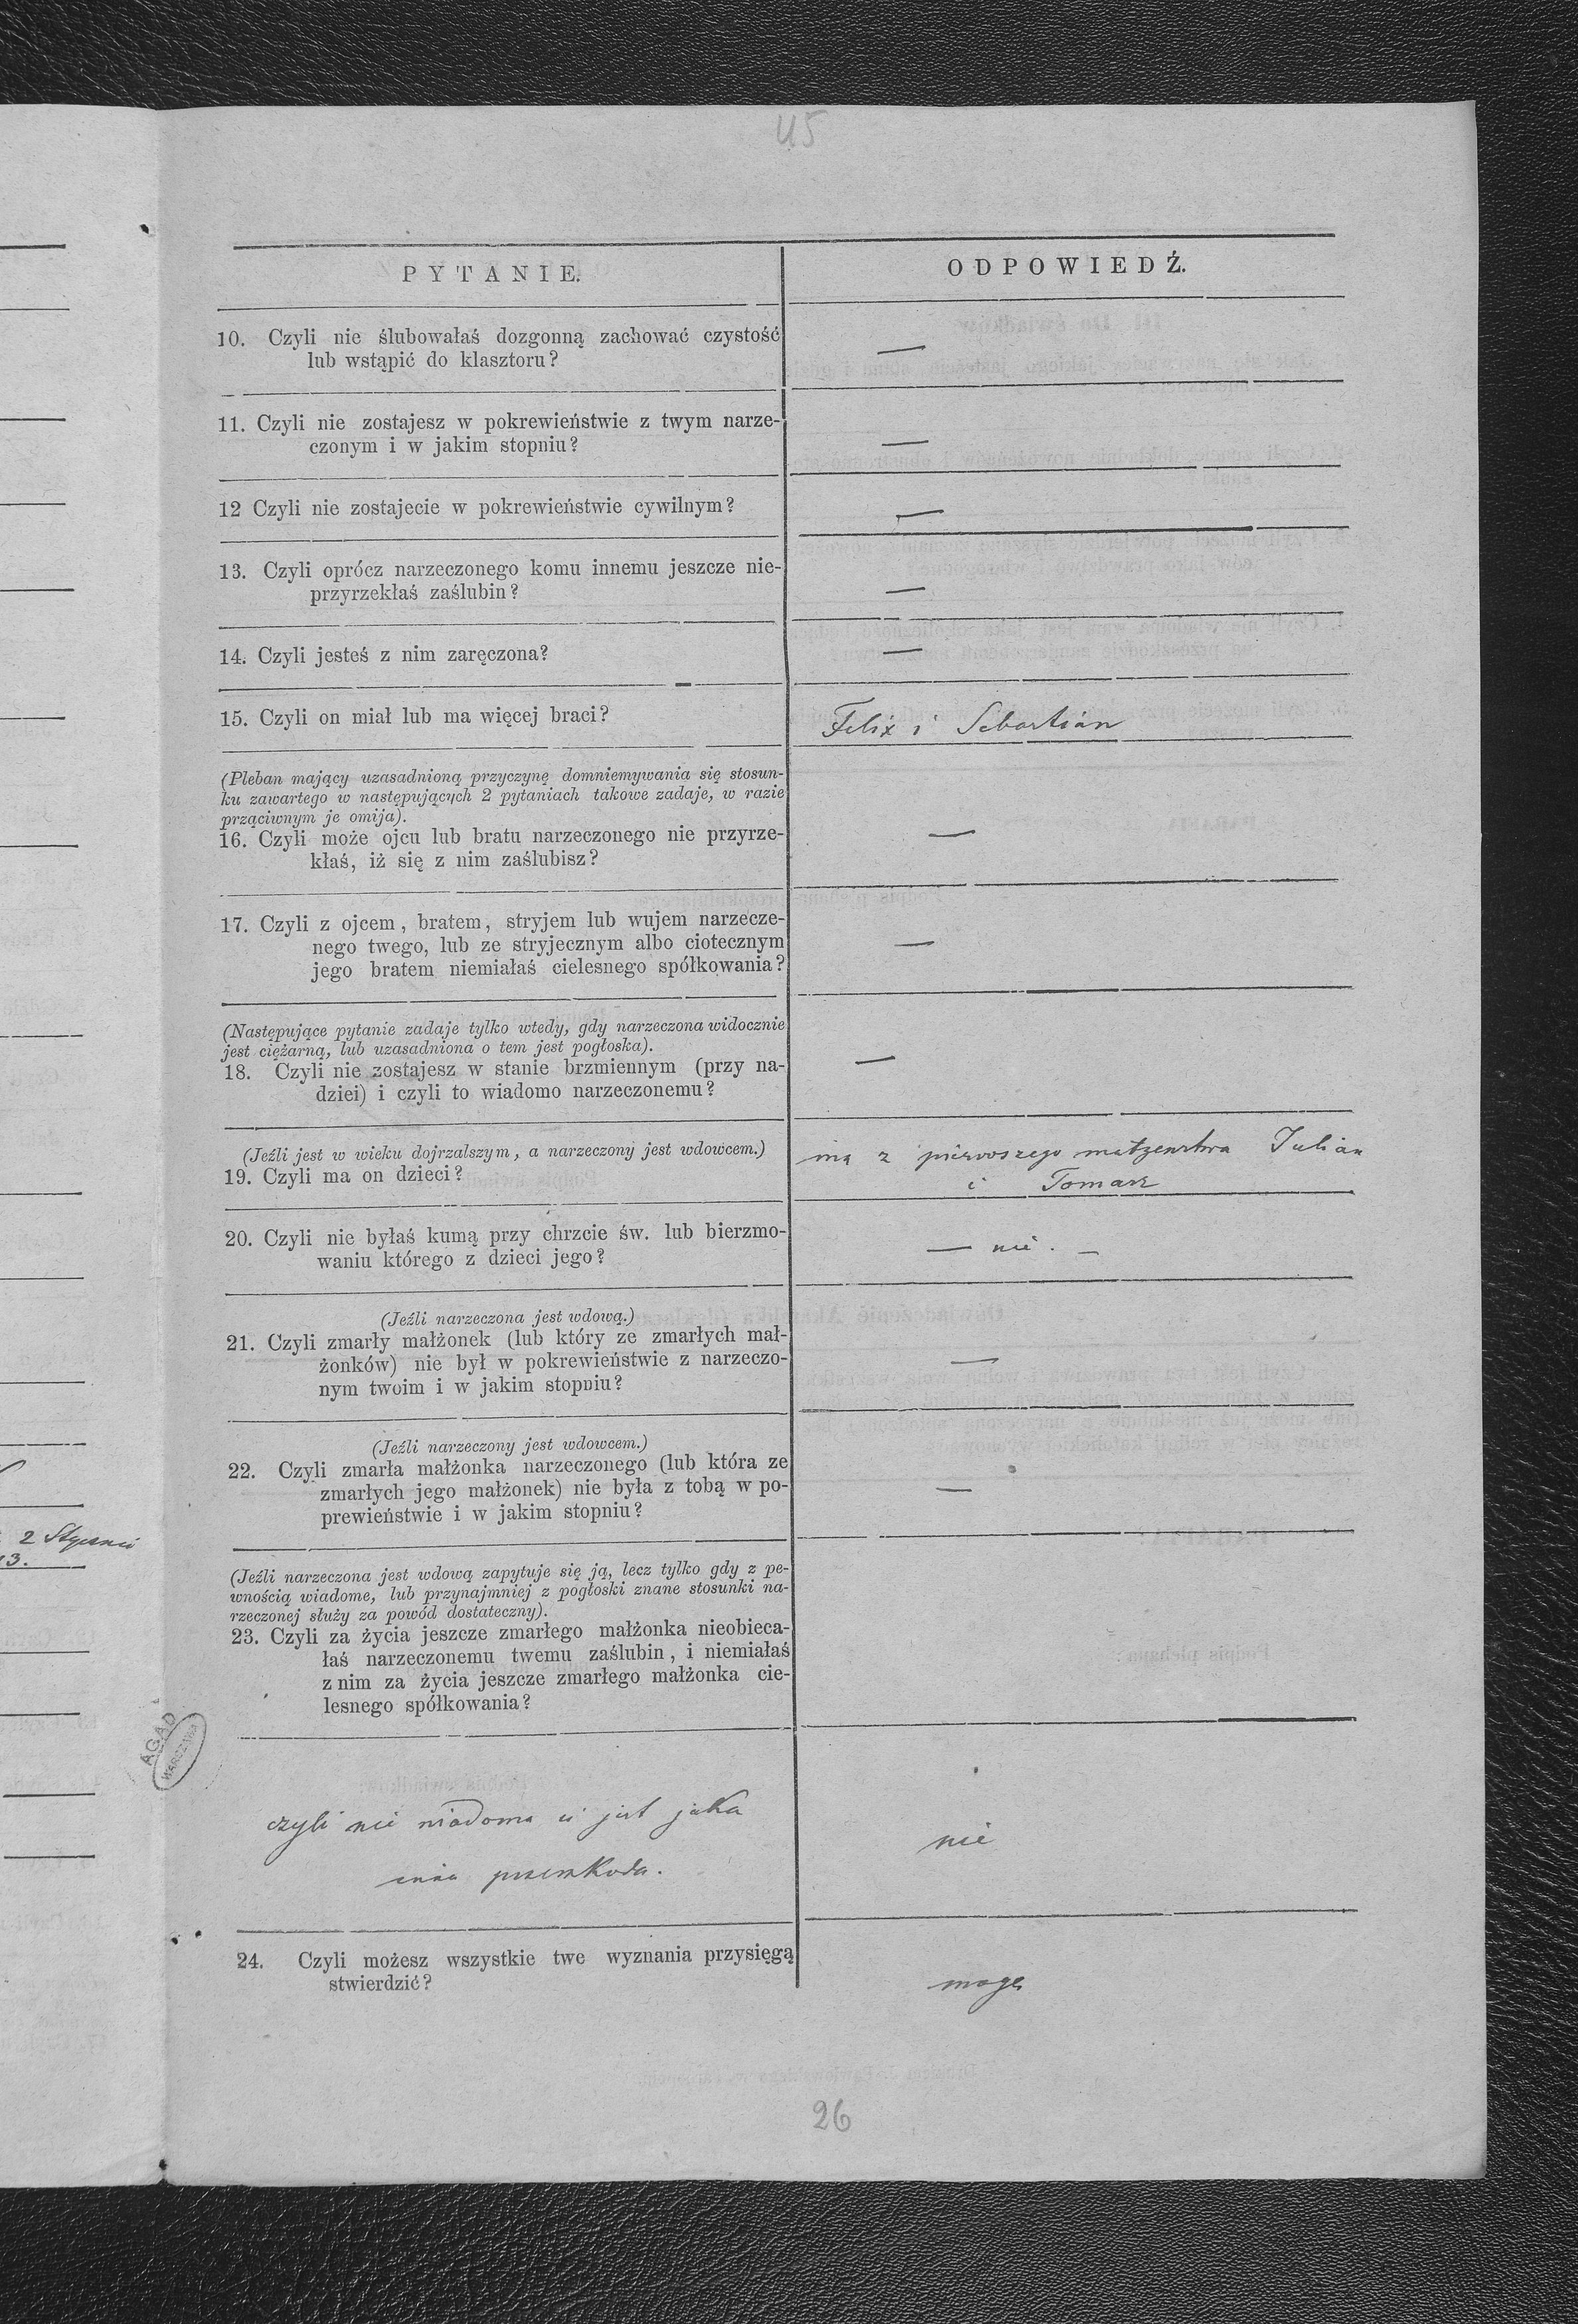 45
PYTANIE.
ODPOWIEDŹ.
10. Czyli nie ślubowałaś dozgonną zachować czystość
lub wstąpić do klasztoru?
—
11. Czyli nie zostajesz w pokrewieństwie z twym narze-
czonym i w jakim stopniu?
—
12 Czyli nie zostajecie w pokrewieństwie cywilnym?
—
13. Czyli oprócz narzeczonego komu innemu jeszcze nie-
przyrzekłaś zaślubin?
—
14. Czyli jesteś z nim zaręczona?
—
15. Czyli on miał lub ma więcej braci?
Felix i Sebastian
(Pleban mający uzasadnioną przyczynę domniemywania się stosun-
ku zawartego w następujących 2 pytaniach takowe zadaje, w razie
prząciwnym je omija).
16. Czyli może ojcu lub bratu narzeczonego nie przyrze-
kłaś, iż się z nim zaślubisz?
—
17. Czyli z ojcem, bratem, stryjem lub wujem narzecze-
nego twego, lub ze stryjecznym albo ciotecznym
jego bratem niemiałaś cielesnego spółkowania?
—
(Następujące pytanie zadaje tylko wtedy, gdy narzeczona widocznie
jest ciężarną, lub uzasadniona o tem jest pogłoska).
18. Czyli nie zostajesz w stanie brzmiennym (przy na-
dziei) i czyli to wiadomo narzeczonemu?
—
(Jeźli jest w wieku dojrzalszym, a narzeczony jest wdowcem.)
19. Czyli ma on dzieci?
ma z pierwszego małżeństwa Julian
i Tomasz
20. Czyli nie byłaś kumą przy chrzcie św. lub bierzmo-
waniu którego z dzieci jego?
— nie. —
(Jeźli narzeczona jest wdową.)
21. Czyli zmarły małżonek (lub który ze zmarłych mał-
żonków) nie był w pokrewieństwie z narzeczo-
nym twoim i w jakim stopniu?
—
(Jeźli narzeczony jest wdowcem.)
22. Czyli zmarła małżonka narzeczonego (lub która ze
zmarłych jego małżonek) nie była z tobą w po-
prewieństwie i w jakim stopniu?
—
2 Stycznia
13.
(Jeźli narzeczona jest wdową zapytuje się ją, lecz tylko gdy z pe-
wnością wiadome, lub przynajmniej z pogłoski znane stosunki na-
rzeczonej służy za powód dostateczny).
23. Czyli za życia jeszcze zmarłego małżonka nieobieca-
łaś narzeczonemu twemu zaślubin, i niemiałaś
z nim za życia jeszcze zmarłego małżonka cie-
lesnego spółkowania?
AGAD
WARSZAWA
czyli nie wiadoma ci jest jaka
inna przeszkoda.
nie
24. Czyli możesz wszystkie twe wyznania przysięgą
stwierdzić?
mogę
26